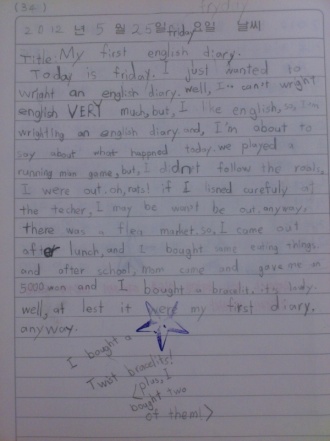 (34)
friday
2012 년 5 월 25일 friday 요일 날씨
Title: My first english diary.
Today is friday. I just wanted to
wright an english diary. well, I can't wright
english VERY much, but, I like english, so, I am
wrighting an english diary. and, I'm about to
say about what happned today. we played a
running man game, but, I didn't follow the rools,
I were out. oh, rats! if I lisned carefuly at
the techer, I may be wan't be out. anyway.
there was a flea market. so, I came out
after lunch, and I bought some eating things.
and after school, mom came and gave me an
5000 won and I bought a bracelit. it's
well, at lest it were my first diary.
anyway.
I bought a
Twist bracelits!
<plus, I
bought two
of them!>